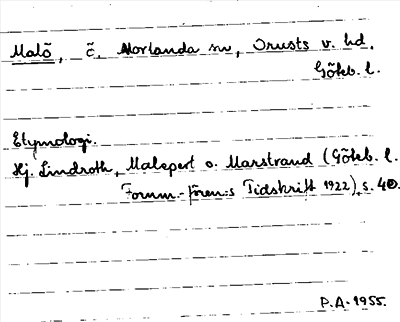 Malö, č. Morlanda sn, Orusts v. hd.
Göteb. l.
Etymologi.
Hj. Lindroth, Malepert o. Marstrand (Göteb. l.
Fornm.-fören:s Tidskrift 1922), s. 40.
P.A. 1955.